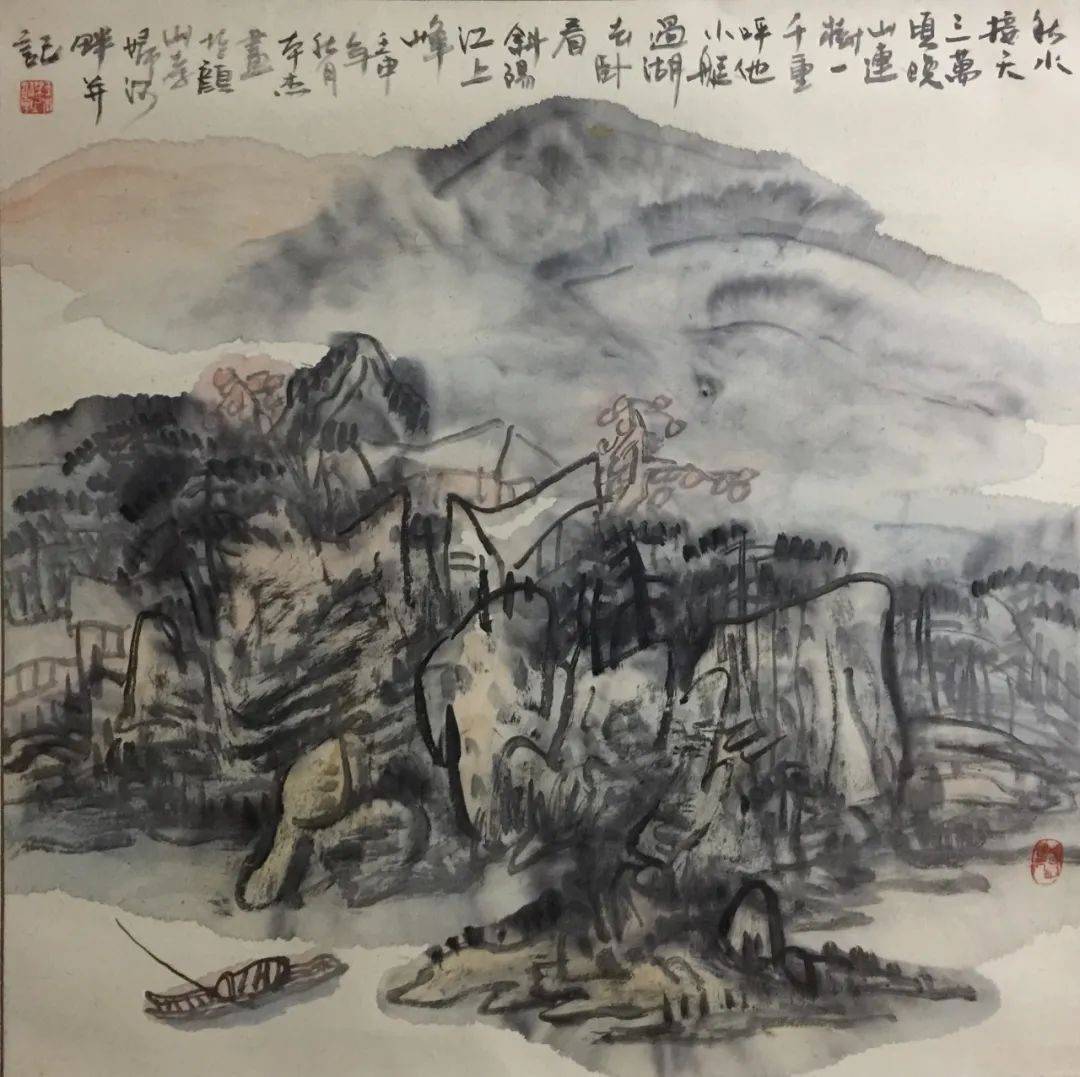 秋水
接天
三萬
頃晚
山連
樹一
千重
呼他
小艇
過湖
去卧
看
斜陽
江上
峰
壬申
年
秋月
本杰
畫
於
山
河
畔并
記